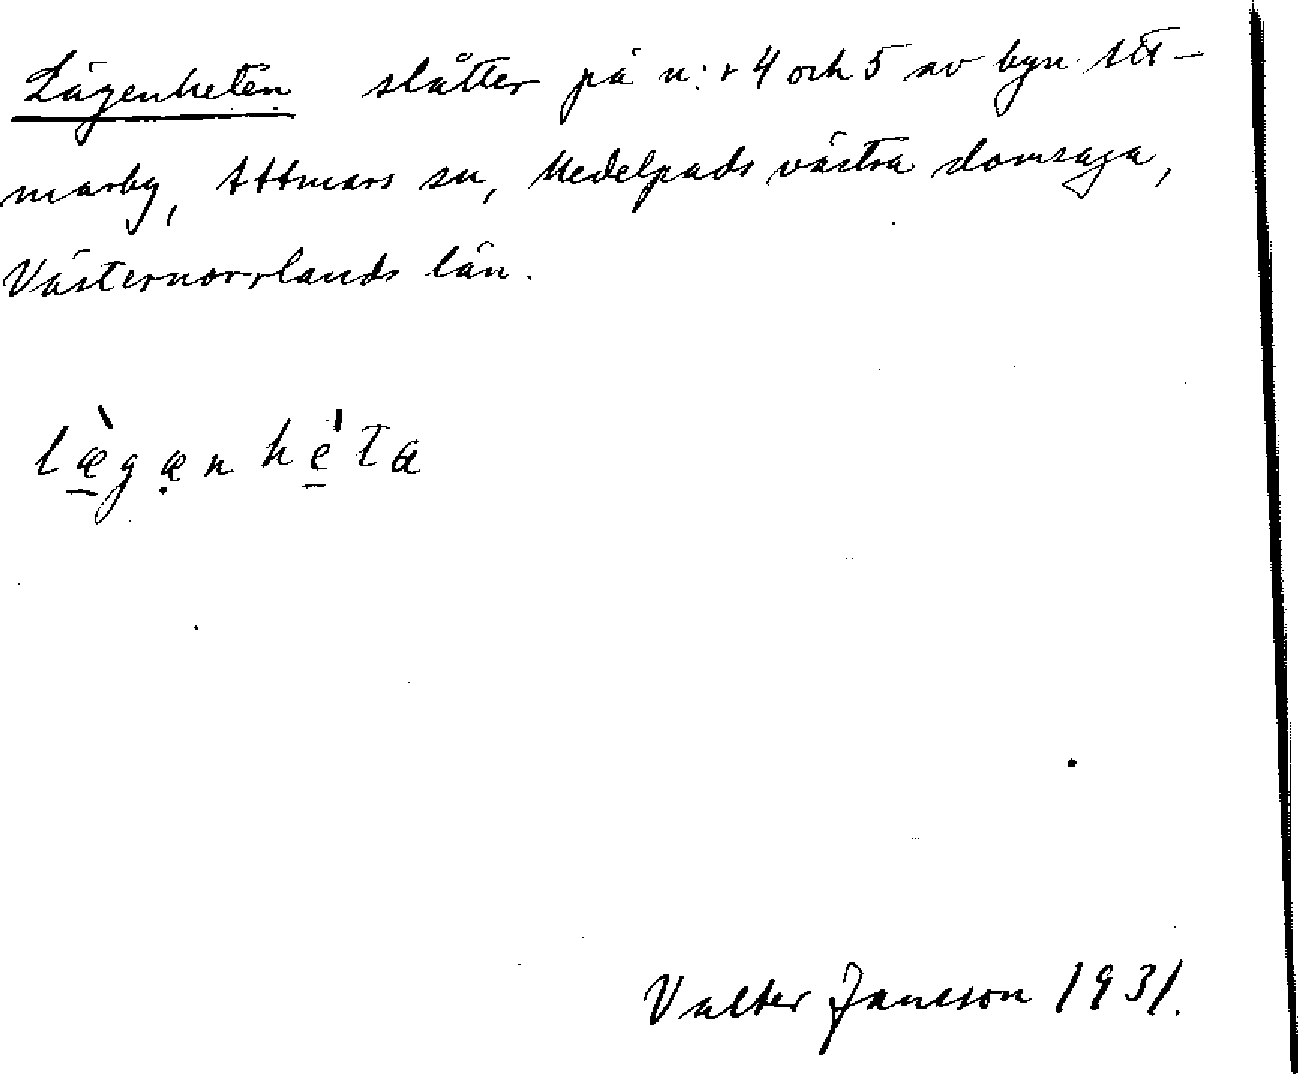 Lägenheten slåtter på n:r 4 och 5 av byn Att-
marby, Attmars sn, Medelpads västra domsaga,
Västernorrlands län.
læ̀gænhéta
Valter Jansson 1931.